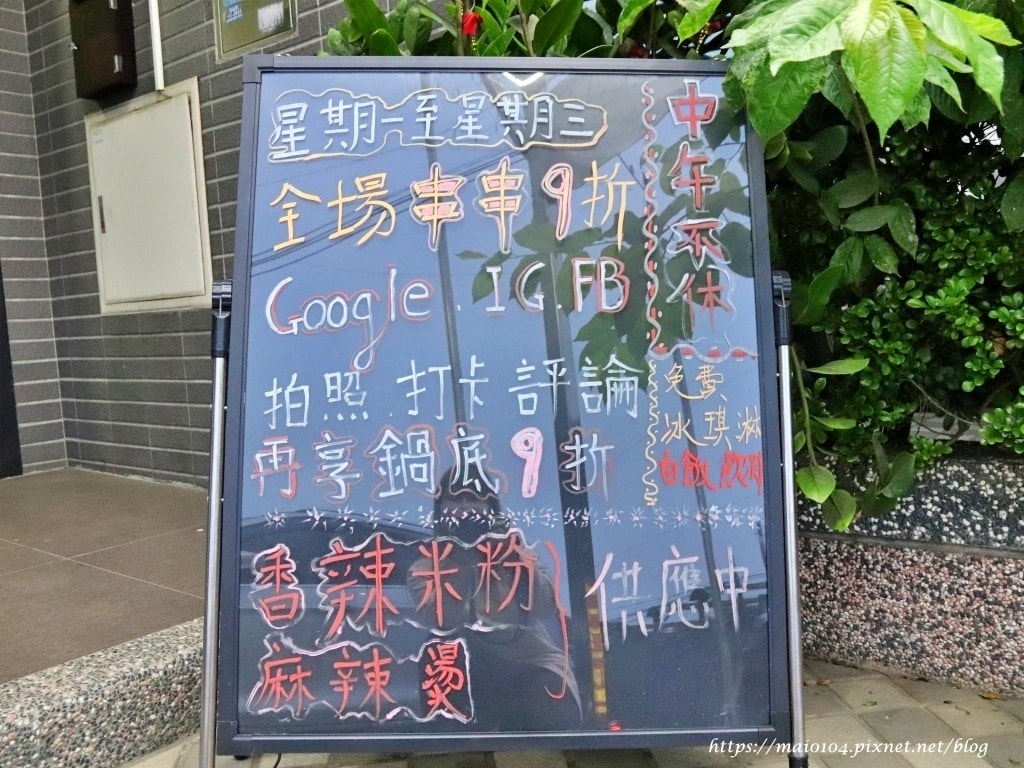 星期一至星期三
全場串串9折
Google.IG.FB
拍照.打卡評論
再享鍋底9折
中午不休
免費
冰琪淋
白飯
香辣米粉
麻辣燙
供應中
https://maio104.pixnet.net/blog